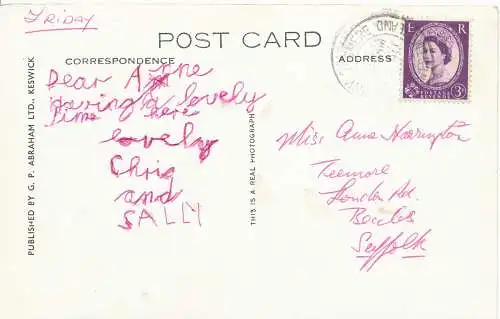 FRIDAY
POST CARD
CORRESPONDENCE
ADDRESS
E R
Dear Anne
having a lovely
time here
lovely
Chris
and
SALLY
Miss Anne Harrington
Teemore
London Rd.
Beccles
Suffolk
PUBLISHED BY G. P. ABRAHAM LTD., KESWICK
THIS IS A REAL PHOTOGRAPH